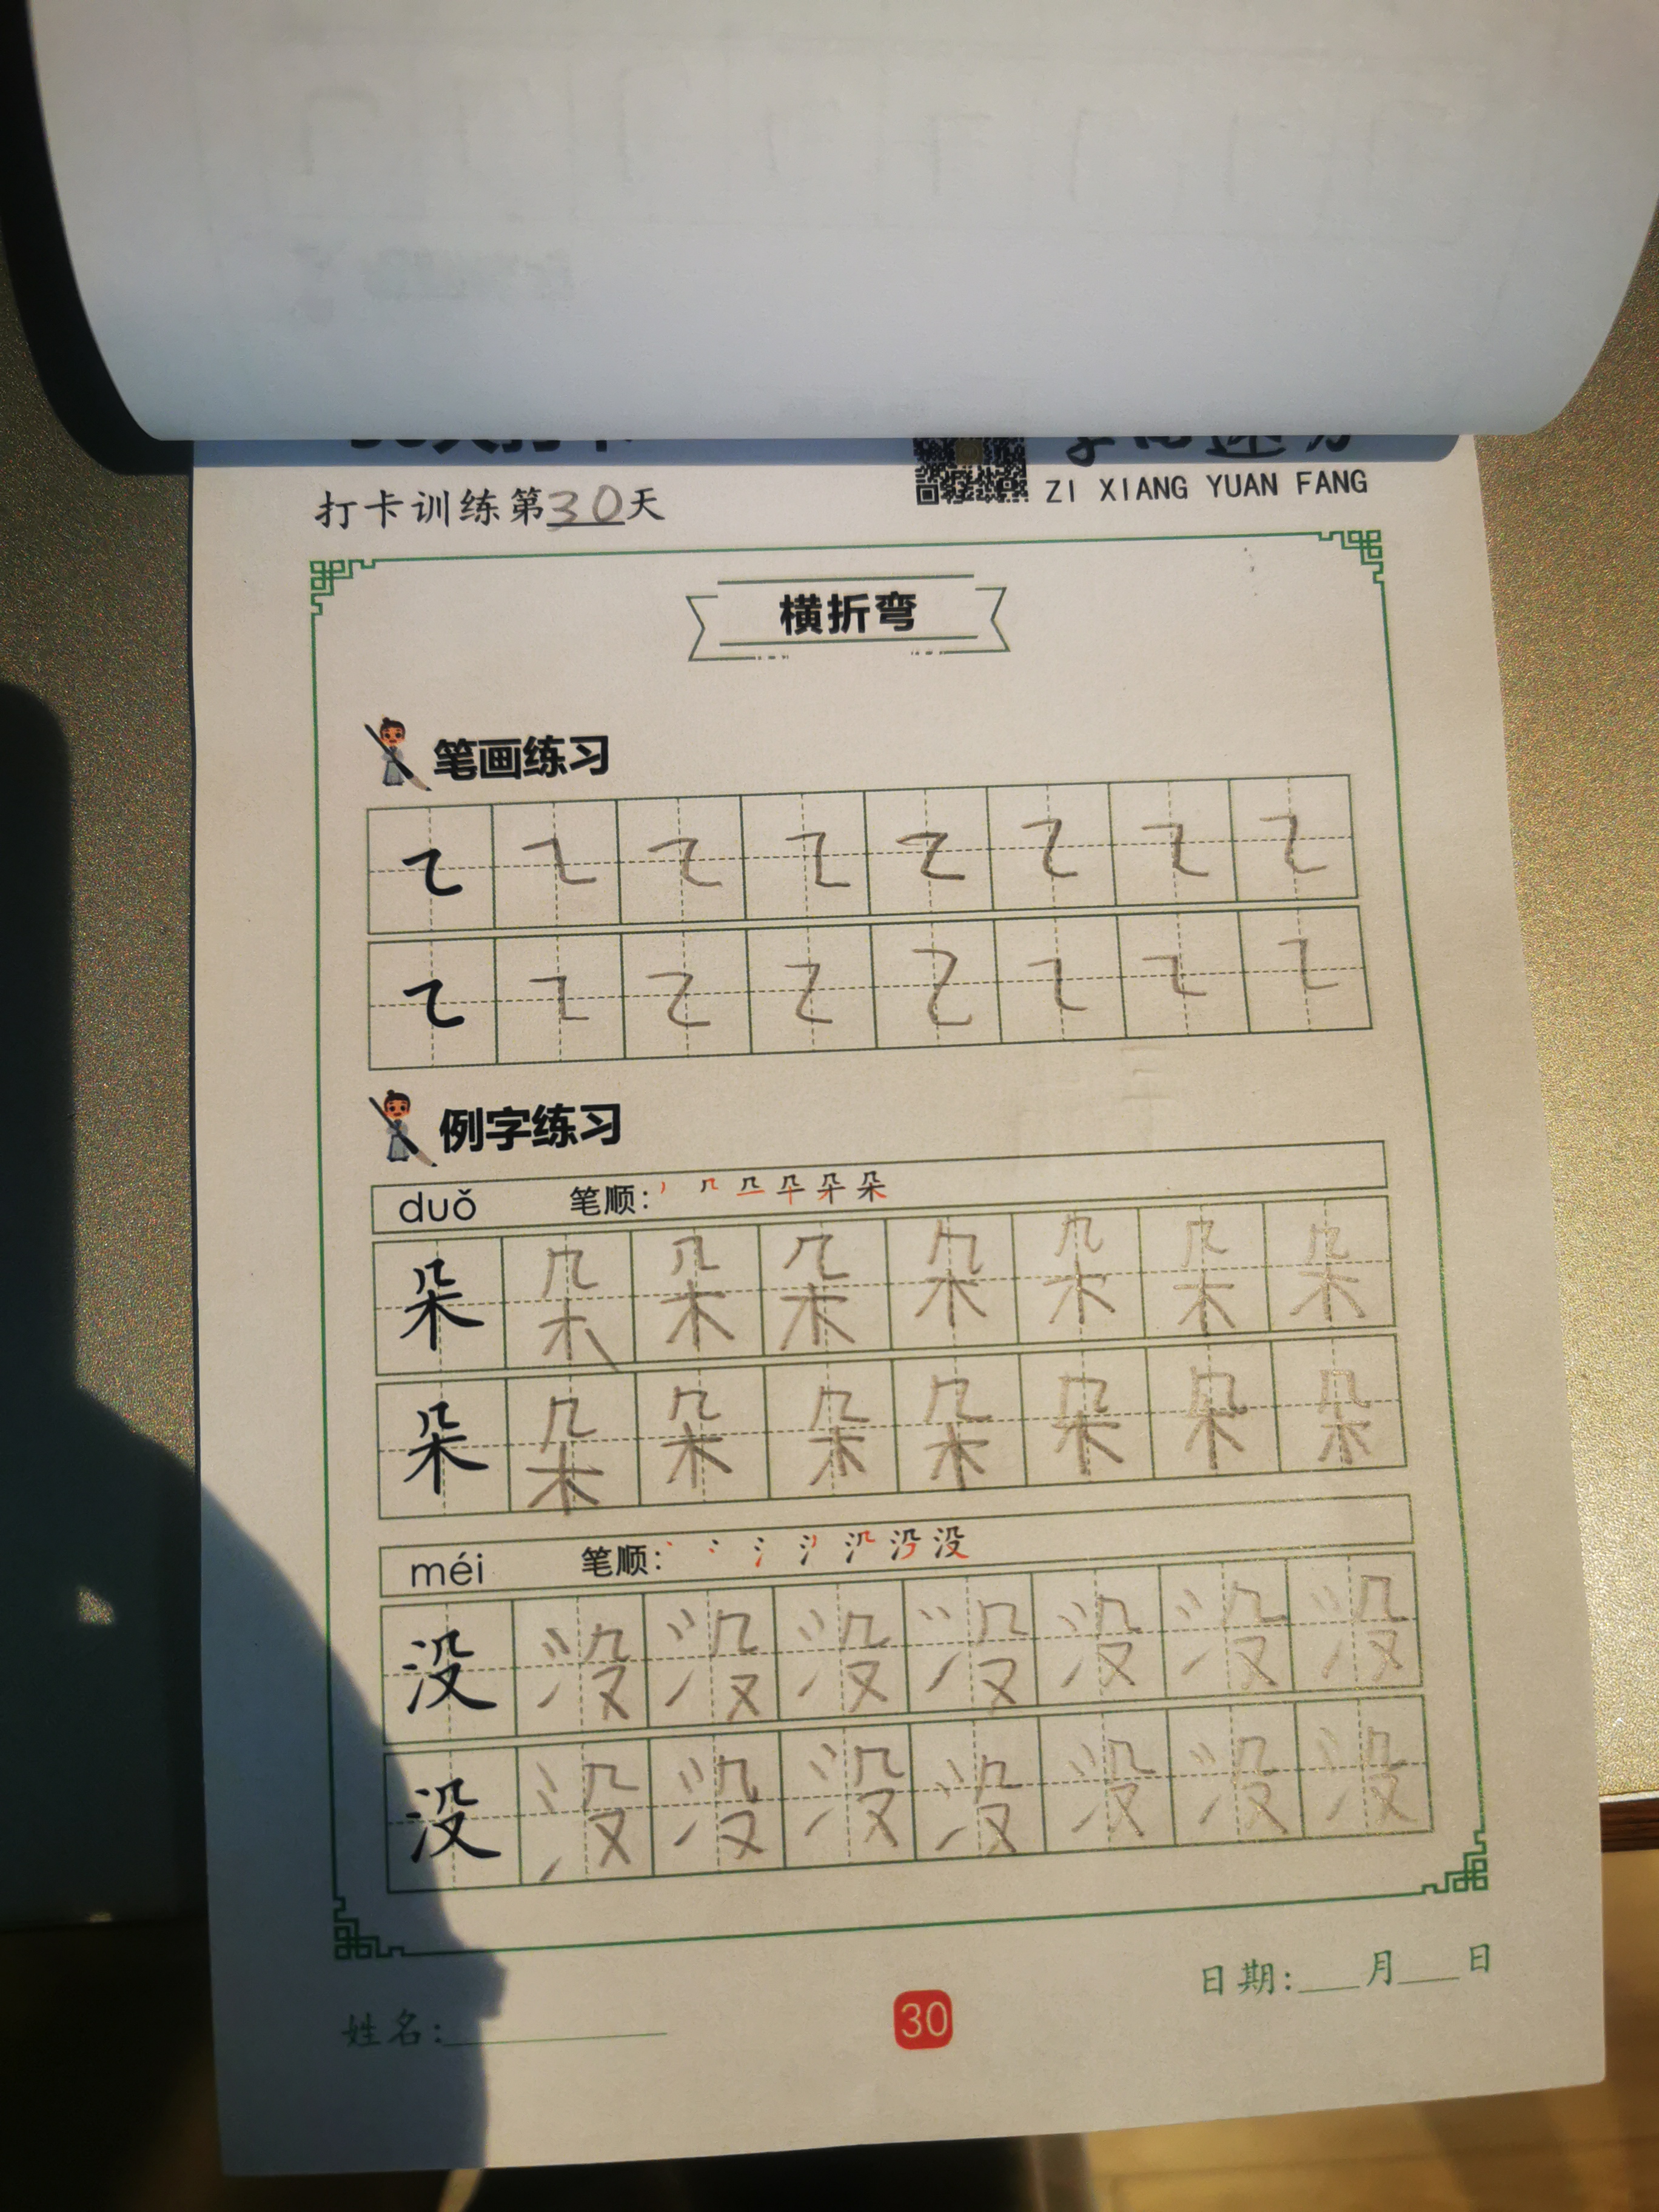 ZI XIANG YUAN FANG
打卡训练第30天
横折弯
笔画练习
例字练习
duǒ 笔顺:
朵 朵 朵 朵 朵 朵 朵 朵
朵 朵 朵 朵 朵 朵 朵 朵
méi 笔顺:
没 没 没 没 没 没 没 没
没 没 没 没 没 没 没 没
日期:___月___日
姓名:
30